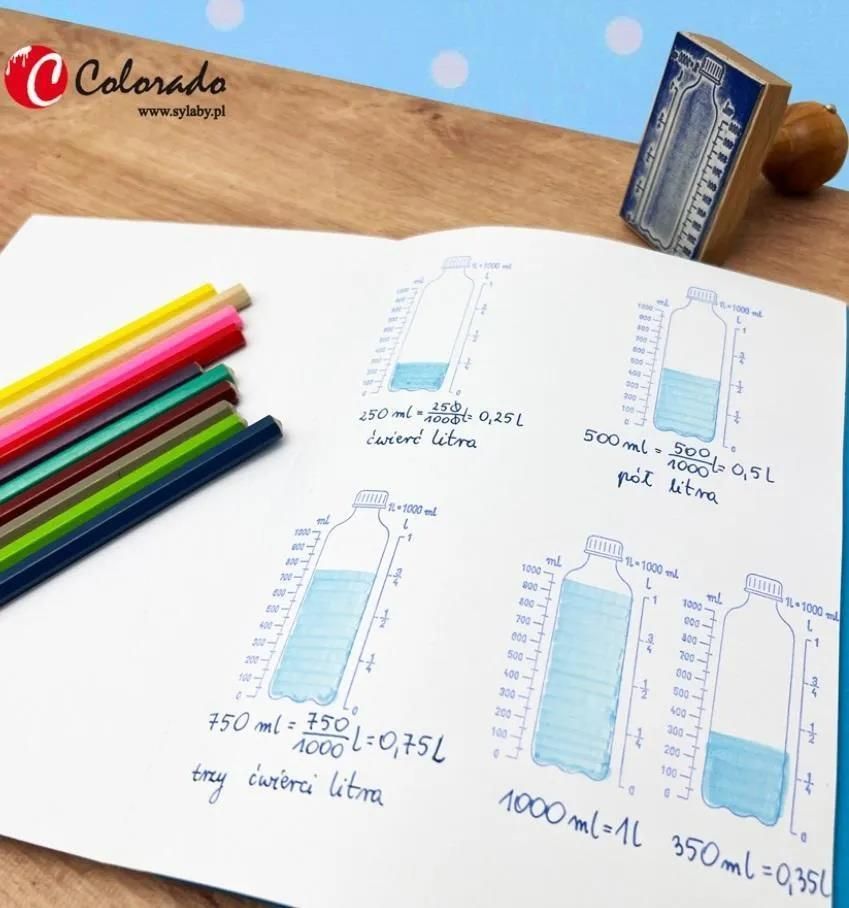 Colorado
www.sylaby.pl
ml 1L=1000 ml
l
1000
900
800
700
600
500
400
300
200
100
0
1
3/4
1/2
1/4
0
250 ml = 250/1000 l = 0,25L
ćwierć litra
ml 1L=1000 ml
l
1000
900
800
700
600
500
400
300
200
100
0
1
3/4
1/2
1/4
0
500 ml = 500/1000 l = 0,5L
pół litra
ml 1L=1000 ml
l
1000
900
800
700
600
500
400
300
200
100
0
1
3/4
1/2
1/4
0
750 ml = 750/1000 l = 0,75L
trzy ćwierci litra
ml 1L=1000 ml
l
1000
900
800
700
600
500
400
300
200
100
0
1
3/4
1/2
1/4
0
1000 ml = 1l
ml 1L=1000 ml
l
1000
900
800
700
600
500
400
300
200
100
0
1
3/4
1/2
1/4
0
350 ml = 0,35l